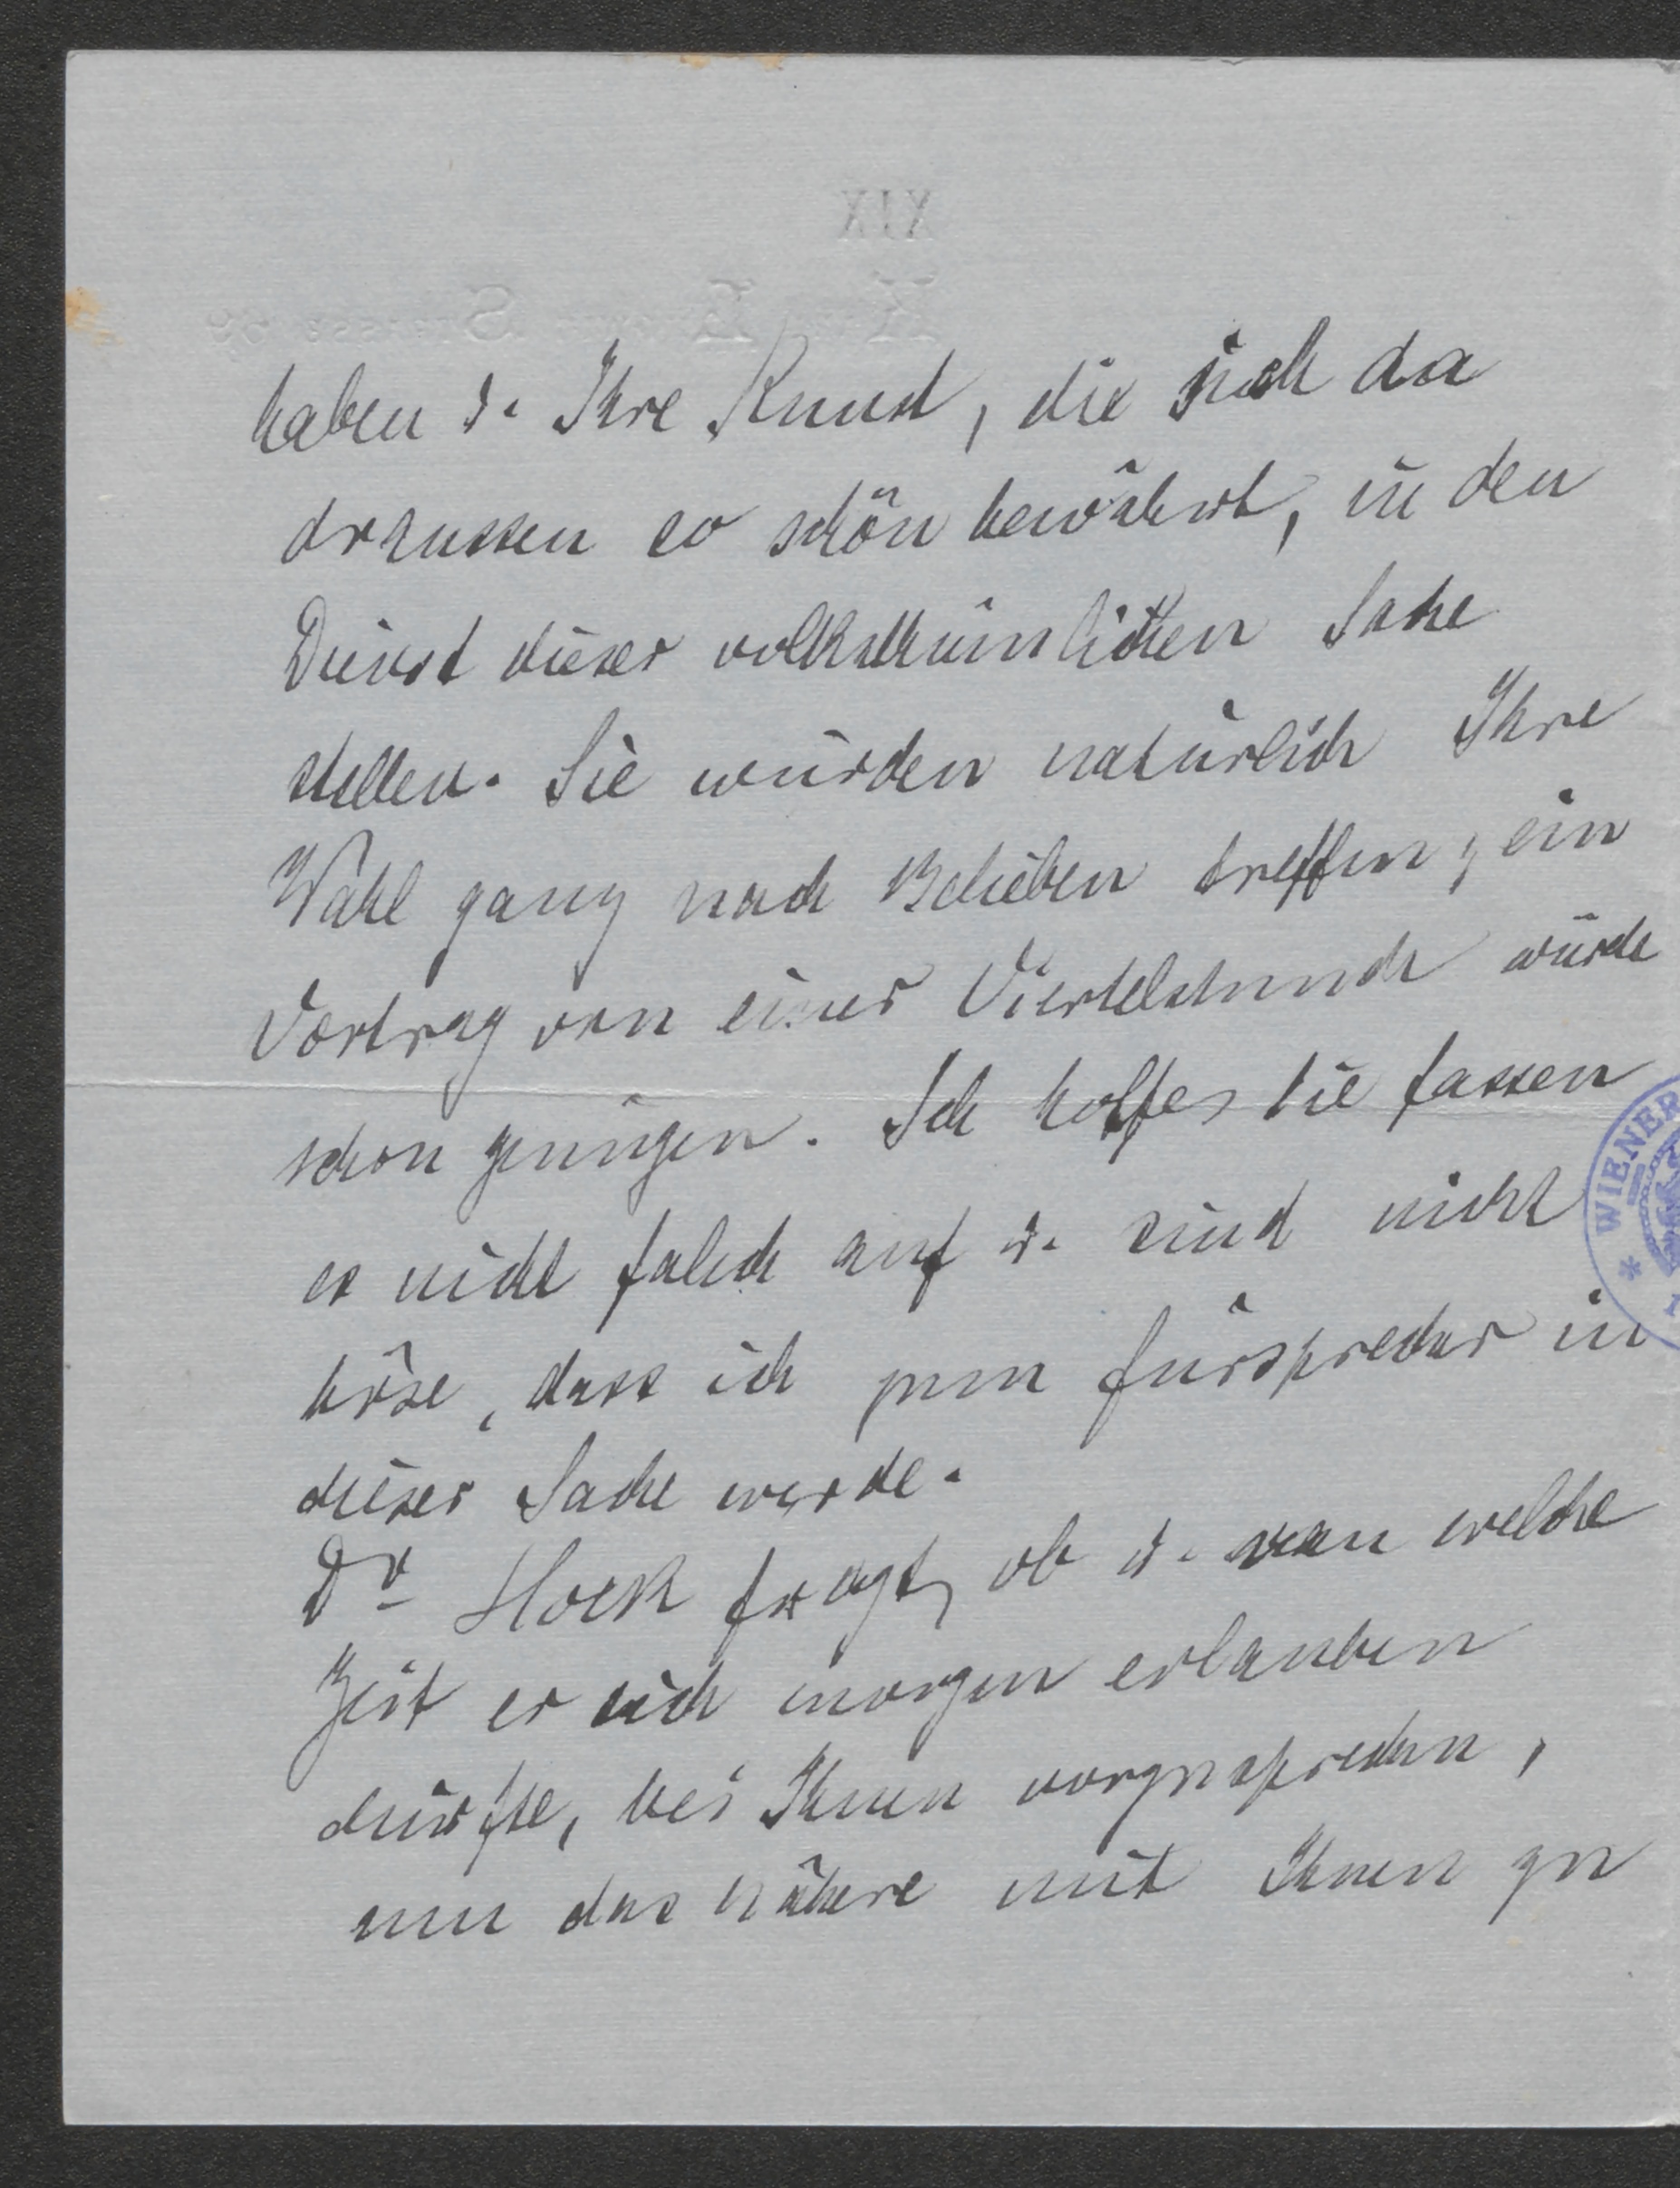 XIX
haben u. Ihre Kunst, die sich da
draussen so schön bewährt, in den
Dienst dieser volksthümlichen Sache
stellen. Sie würden natürlich Ihre
Wahl ganz nach Belieben treffen, ein
Vortrag von einer Viertelstunde würde
schon genügen. Ich hoffe, Sie fassen
es nicht falsch auf u. sind nicht
böse, dass ich zum Fürsprecher in
dieser Sache werde.
Dr Hock fragt, ob u. wann welche
Zeit er sich morgen erlauben
dürfte, bei Ihnen vorzusprechen,
um das Nähere mit Ihnen zu
WIENER